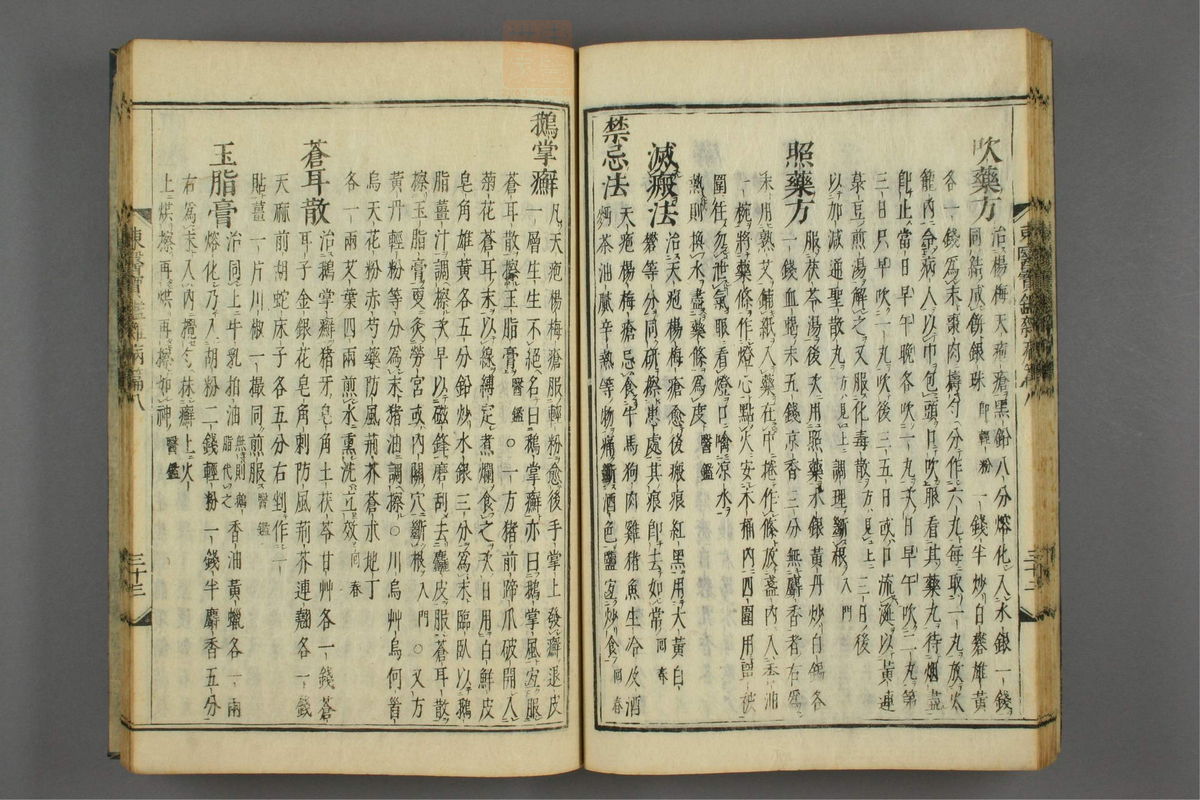 吹藥方治楊梅天疱瘡黑鉛八分熔化入水銀一錢
同結成餠銀珠卽輕粉一錢半炒白礬雄黃
各一錢爲末棗肉擣勻分作六丸每取一丸放火
籠內令病人以巾包頭口吹服看其藥丸待烟盡
卽止當日早午晚各吹一丸次日早午吹二丸第
三日只早吹一丸吹後三五日或口流涎以黃連
菉豆煎湯解之又服化毒散方見上三日後
以加減通聖散丸方見上調理斷根入門
照藥方服茯苓湯後次用照藥水銀黃丹炒白錫各
一錢血蝎末五錢沉香三分無麝香者右爲
末用熟艾鋪紙入藥在中捲作條放盞內入香油
一椀將藥條作燈心點火安木桶內四圍用
圍住勿泄氣眼看燈口噙凉水
熱則換水盡藥條爲度醫鑑
滅瘢法治天疱楊梅瘡愈後瘢痕紅黑用大黃白
礬等分同硏擦患處其痕卽去如常回春
禁忌法天疱楊梅瘡忌食牛馬狗肉雞猪魚生冷及酒
麪茶油膩辛熱等物痛斷酒色鹽宜炒食回春
東醫寶鑑雜病篇八
三十二
東醫寶鑑雜病篇八
三十三
鵝掌癬凡天疱楊梅瘡服輕粉愈後手掌上發癬退皮
一層生生不絕名曰鵝掌癬亦曰鵝掌風宜服
蒼耳散擦玉脂膏醫鑑○一方猪前蹄爪破開入
菊花蒼耳末以線縛定煮爛食之次日用白鮮皮
皂角雄黃各五分鉛炒水銀三分爲末臨臥以鵝
脂薑汁調擦次早以磁鋒磨刮去麤皮服蒼耳散
擦玉脂膏更灸勞宮或內關穴斷根入門○又方
黃丹輕粉等分爲末猪油調擦○川烏艸烏何首
烏天花粉赤芍藥防風荊芥蒼朮地丁
各一兩艾葉四兩煎水熏洗立效回春
蒼耳散治鵝掌癬猪牙皂角土茯苓甘艸各一錢蒼
耳子金銀花皂角刺防風荊芥連翹各一錢
天麻前胡蛇床子各五分右剉作一
貼薑一片川椒一撮同煎服醫鑑
玉脂膏治同上牛乳拍油無則鵝脂代之香油黃蠟各一兩
熔化乃入胡粉二錢輕粉一錢半麝香五分
右爲末入內攪勻抹癬上火
上烘擦再烘再擦如神醫鑑